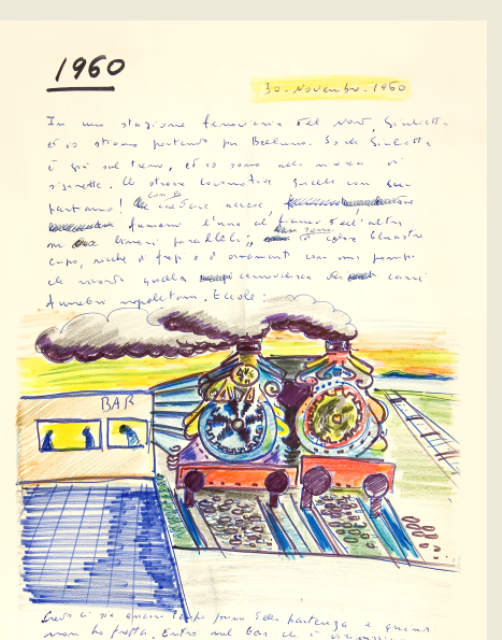 1960
30. Novembre. 1960
In una stazione ferroviaria del Nord, Giulietta
ed io stiamo partendo per Belluno. Giulietta
è già sul treno, ed io sono alla di
sigarette. Che strane locomotive quelle con cui
partiamo! con le caldaie accese,
fumano l'una al fianco dell'altra
su binari paralleli; sono di colore bluastro
cupo, ricche di fregi e d'ornamenti con una pompa
che ricorda quella carri
funebri napoletani. Eccole:
BAR
Credo ci sia ancora tempo prima della partenza e quindi
non ho fretta. Entro nel bar che è